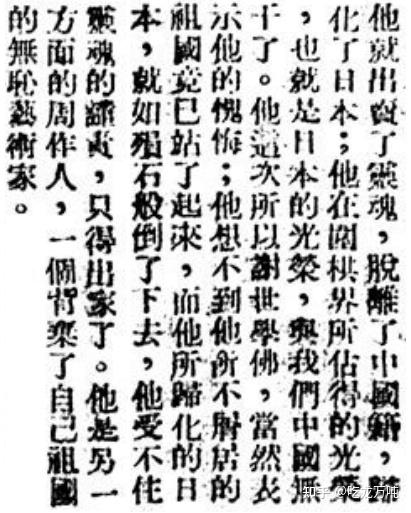 他就出賣了靈魂，脫離了中國籍，歸
化了日本；他在圍棋界所佔得的光榮
，也就是日本的光榮，與我們中國無
干了。他這次所以謝世學佛，當然表
示他的愧悔；他想不到他所不屑居的
祖國竟已站了起來，而他所歸化的日
本，就如殞石般倒了下去，他受不住
靈魂的譴責，只得出家了。他是另一
方面的周作人，一個背棄了自己祖國
的無恥藝術家。
知乎